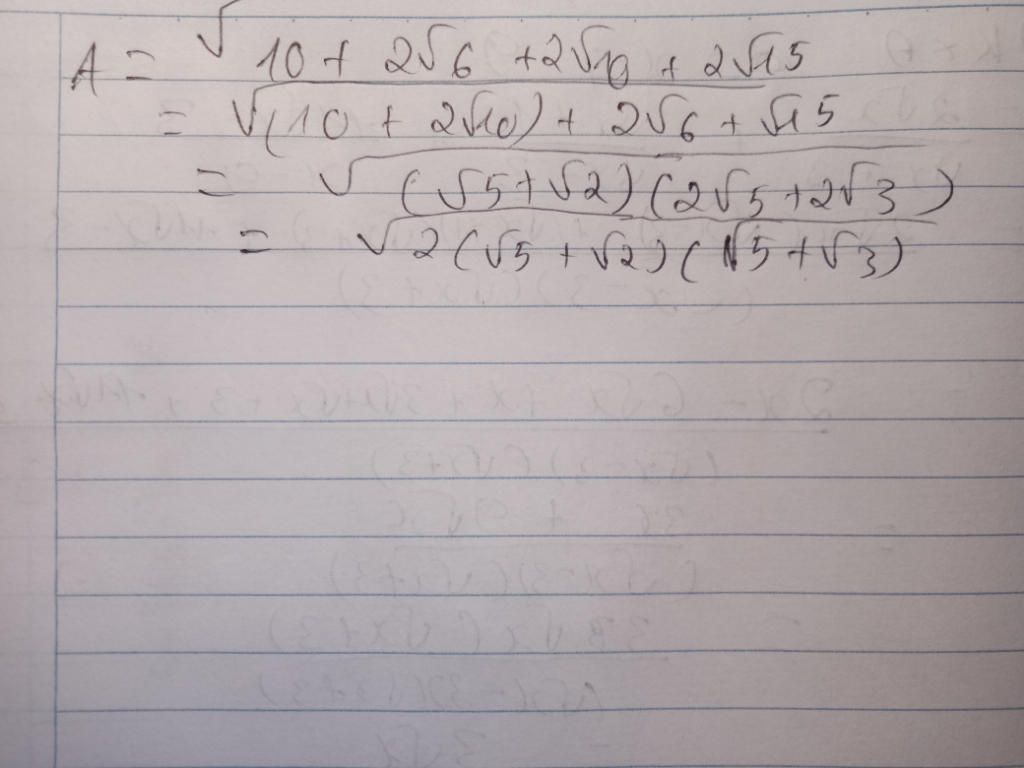 A = √10 + 2√6 + 2√10 + 2√15
= √(10 + 2√10) + 2√6 + √15
= √(√5 + √2)(2√5 + 2√3)
= √2(√5 + √2)(√5 + √3)